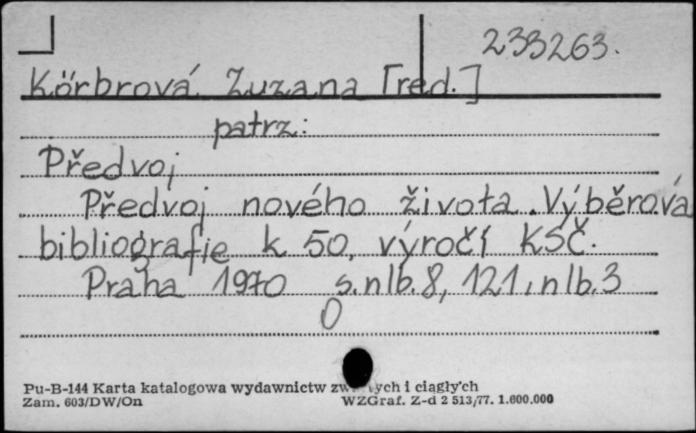 233263.
Körbrová Zuzana [red.]
patrz:
Předvoj
Předvoj nového života. Výběrová
bibliografie k 50. výročí KSČ.
Praha 1970 s.nlb.8, 121, nlb.3
0
Pu-B-144 Karta katalogowa wydawnictw zw tych i ciągłych
Zam. 603/DW/On WZGraf. Z-d 2 513/77. 1.600.000